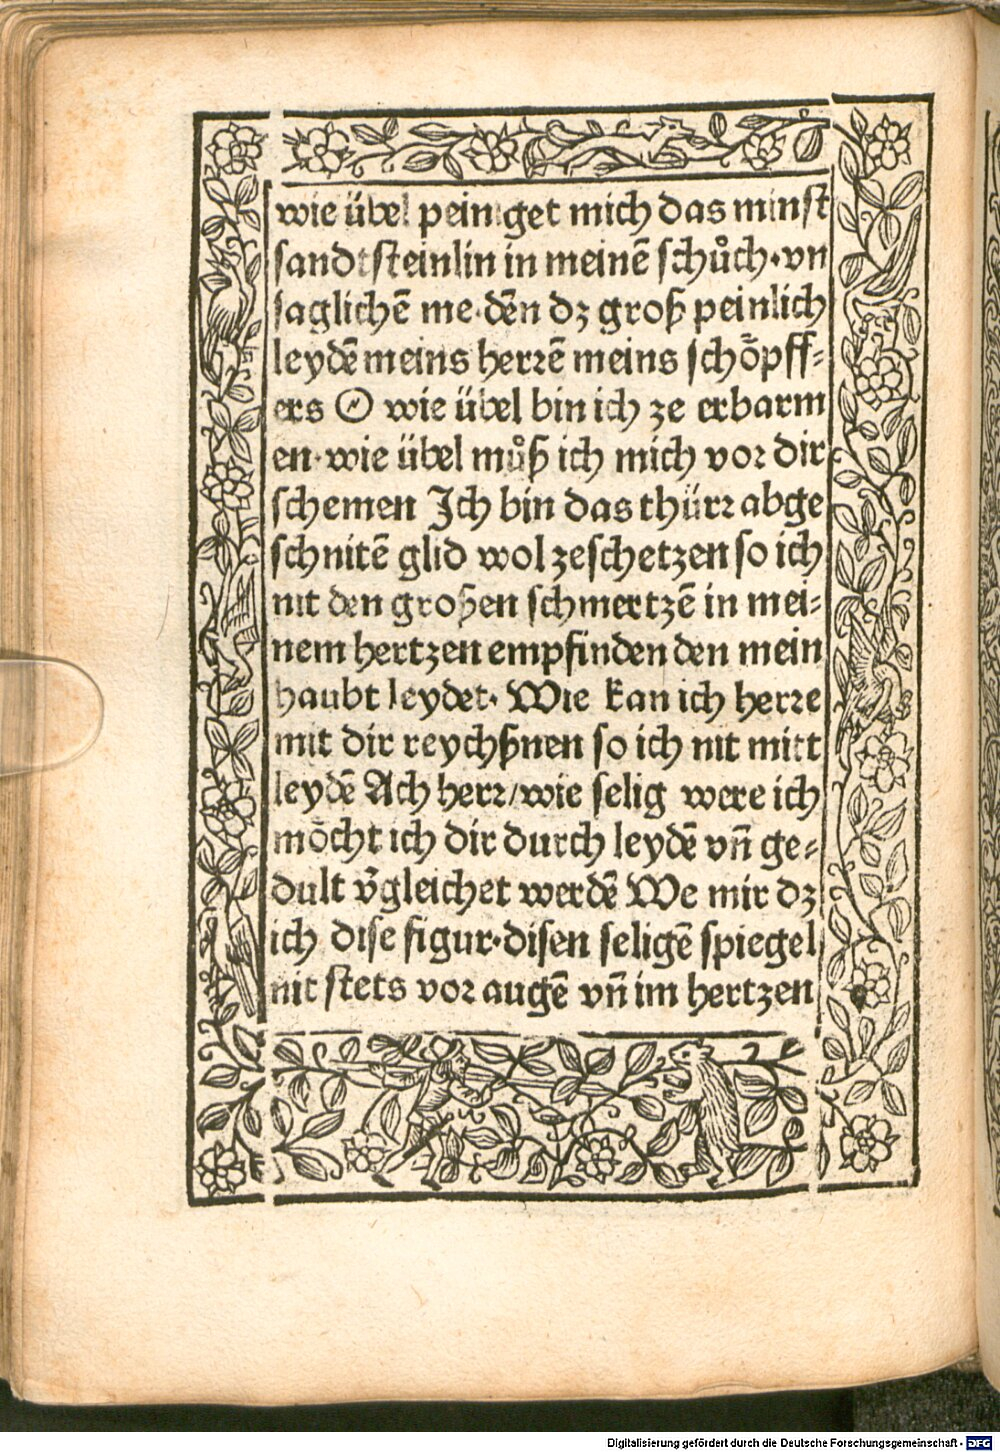 wie übel peiniget mich das minst
sandtsteinlin in meinē schůch·vn
saglichē me·dēn dz groß peinlich
leydē meins herrē meins schöpff-
ers O wie übel bin ich ze erbarm
en·wie übel můß ich mich vor dir
schemen Ich bin das thürr abge
schnitē glid wol zeschetzen so ich
nit den großen schmertzē in mei-
nem hertzen empfinden den mein
haubt leydet· Wie kan ich herre
mit dir reychßnen so ich nit mitt
leydē Ach herr/wie selig were ich
möcht ich dir durch leydē vn̄ ge-
dult v̄gleichet werdē We mir dz
ich dise figur·disen seligē spiegel
nit stets vor augē vn̄ im hertzen
Digitalisierung gefördert durch die Deutsche Forschungsgemeinschaft - DFG